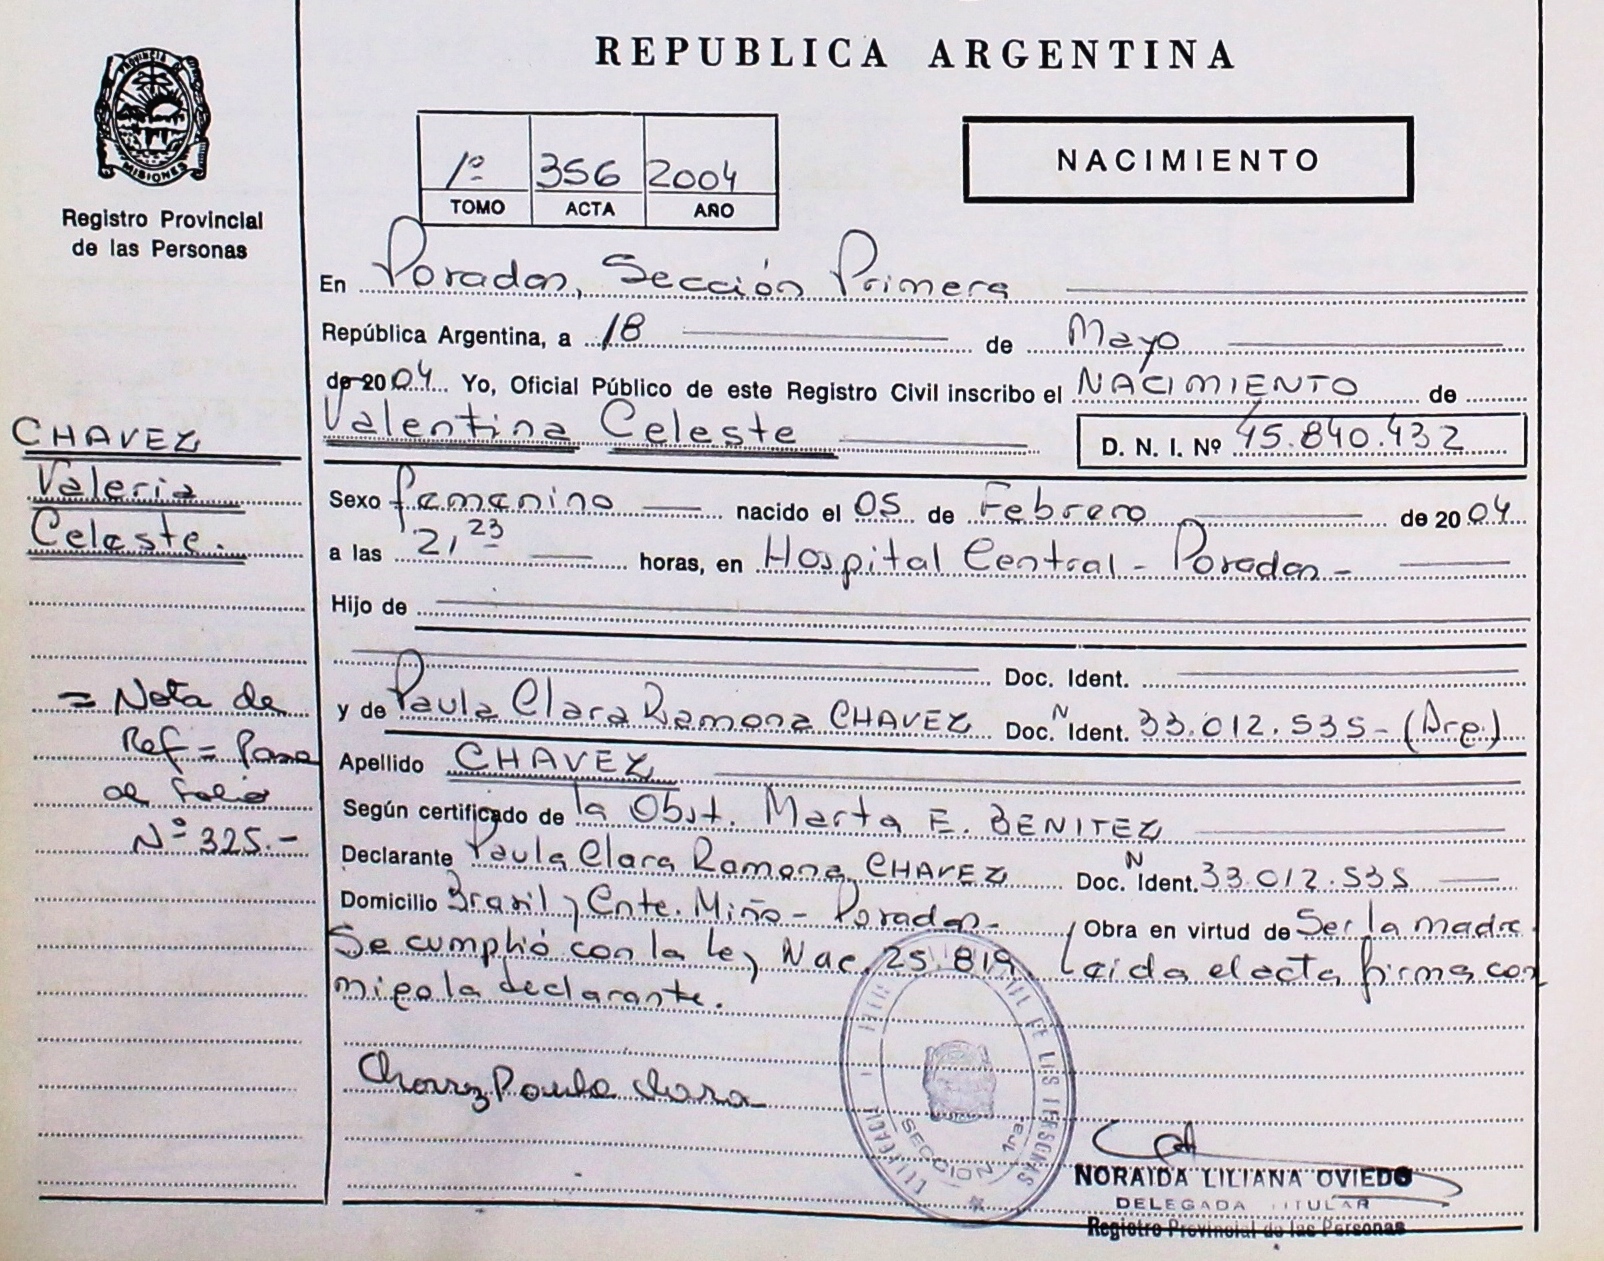 REPUBLICA ARGENTINA
PROVINCIA DE
MISIONES
Registro Provincial
de las Personas
1º 356 2004
TOMO ACTA AÑO
NACIMIENTO
En Posadas, Sección Primera
República Argentina, a 18 de Mayo
de 2004 Yo, Oficial Público de este Registro Civil inscribo el NACIMIENTO de
Valentina Celeste D. N. I. Nº 45.840.432
CHAVEZ
Valeria
Celeste.
Sexo femenino nacido el 05 de Febrero de 2004
a las 21,23 horas, en Hospital Central - Posadas -
Hijo de
Doc. Ident.
y de Paula Clara Ramona CHAVEZ Doc. N Ident. 33.012.535 - (Arg.)
Apellido CHAVEZ
Según certificado de la Obst. Marta E. BENITEZ
Declarante Paula Clara Ramona CHAVEZ Doc. N Ident. 33.012.535
Domicilio Brasil y Cnte. Miño - Posadas - Obra en virtud de Ser la madre.
Se cumplió con la ley Nac. 25.819. Leida el acta firma con
migo la declarante.
= Nota de
Ref = Pase
al folio
Nº 325.-
Chavez Paula Clara
DE LAS PERSONAS
SECCION 1ra
NORAIDA LILIANA OVIEDO
DELEGADA TITULAR
Registro Provincial de las Personas